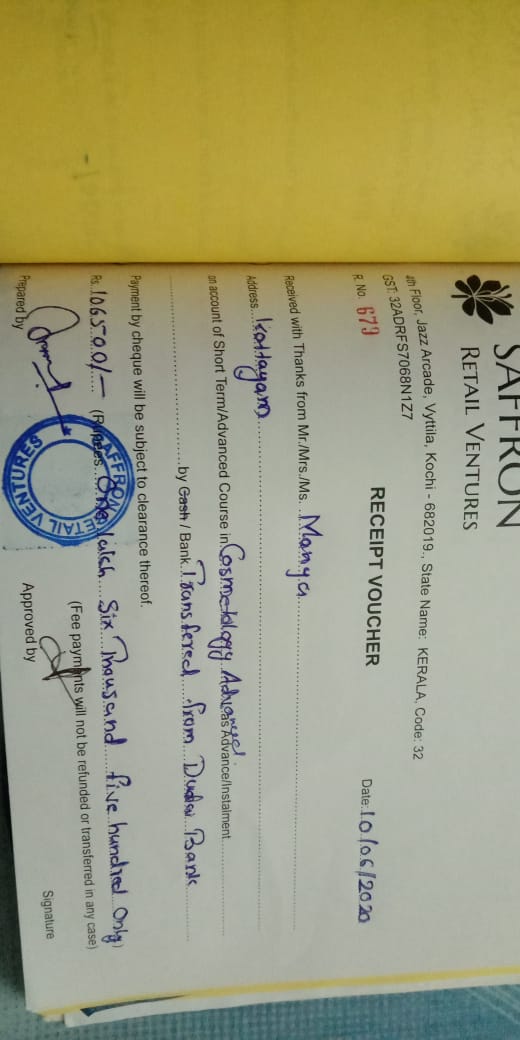 SAFFRON
RETAIL VENTURES
4th Floor, Jazz Arcade, Vyttila, Kochi - 682019., State Name: KERALA, Code: 32
GST: 32ADRFS7068N1Z7
R. No. 679
RECEIPT VOUCHER
Date: 10/06/2020
Received with Thanks from Mr./Mrs./Ms. Manya
Address Kottayam
on account of Short Term/Advanced Course in Cosmetology Advanced as Advance/Instalment
by Cash / Bank Transfered from Bank
Payment by cheque will be subject to clearance thereof.
Rs. 106500/- (Rupees One lakh Six Thousand five hundred Only)
(Fee payments will not be refunded or transferred in any case)
Prepared by
SAFFRON RETAIL VENTURES
Approved by
Signature